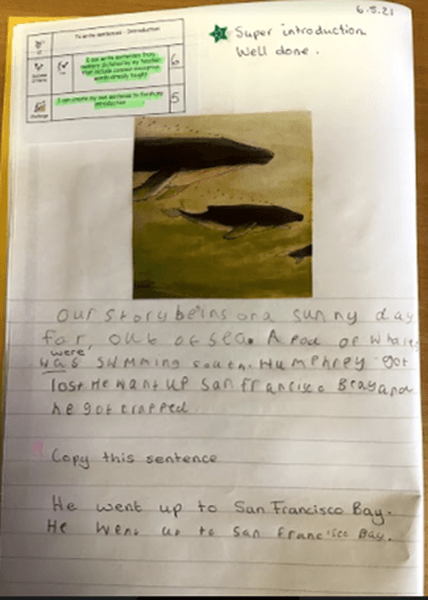 6.5.21
To write sentences - Introduction
I can write sentences from memory dictated by my teacher that include common exception words already taught
6
I can create my own sentence to finish my introduction
5
Super introduction
Well done.
Our story beins ona sunny day
far, out at sea. A pod of whales
were
was swmming south. Humphrey got
lost He want up San francisco Bray and
he got trapped
Copy this sentence
He went up to San Francisco Bay.
He went up to San Francisco Bay.